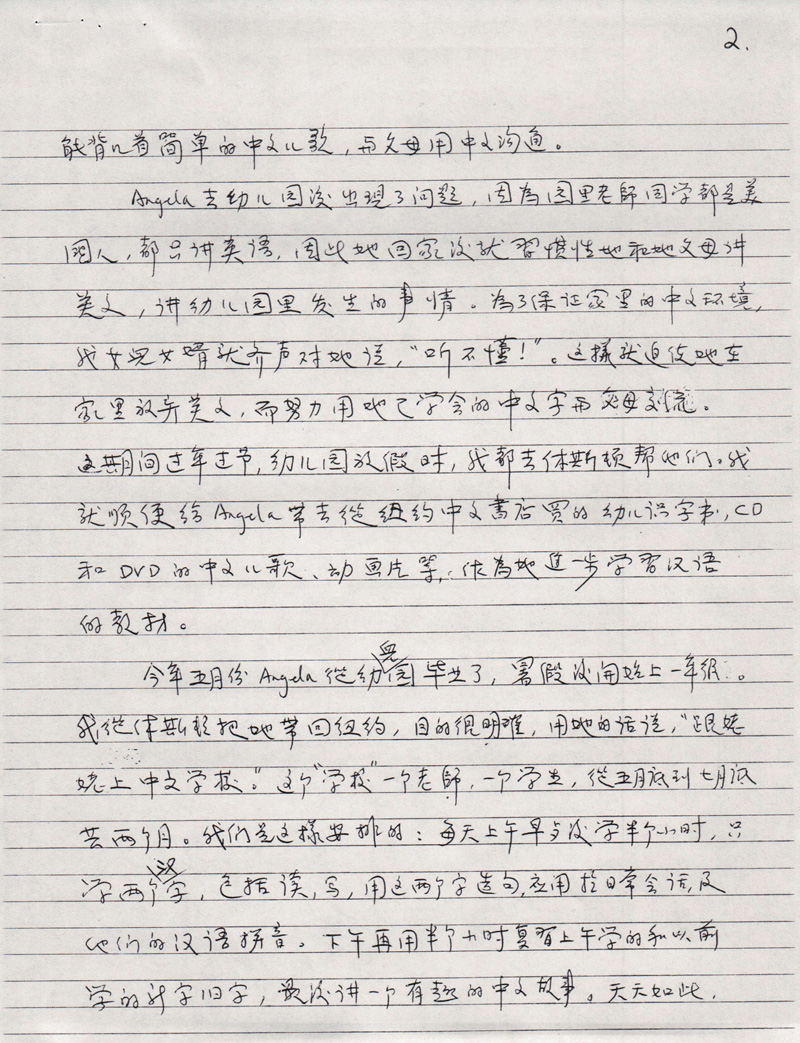 2.
能背几首简单的中文儿歌，与父母用中文沟通。
Angela去幼儿园后出现了问题，因為园里老師同学都是美
国人，都只讲英语，因此她回家后就習慣性地和她父母讲
英文，讲幼儿园里发生的事情。為了保证家里的中文环境，
我女兒女婿就齐声对她说，“听不懂！”。这樣就迫使她在
家里放弃英文，而努力用她已学会的中文字与父母交流。
这期间过年过节，幼儿园放假时，我都去休斯顿帮他们。我
就顺便给Angela带去從纽约中文書店買的幼儿识字书，CD
和DVD的中文儿歌、动画片等，作為她進一步学習汉语
的教材。
今年五月份Angela從幼兒园毕业了，暑假后開始上一年级。
我從休斯顿把她带回纽约，目的很明確，用她的话说，“跟姥
姥上中文学校。”这个“学校”一个老師，一个学生，從五月底到七月底
共两个月。我们是这樣安排的：每天上午早点后学半个小时，只
学两个汉字，包括读，写，用这两个字造句，应用於日常会话，及
他们的汉语拼音。下午再用半个小时复習上午学的和以前
学的新字旧字，最后讲一个有趣的中文故事。天天如此，